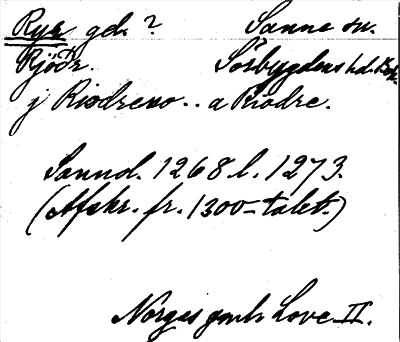 Ryr gd. ? Sanne sn.
Rjödr. Sörbygdens hd. Boh.
j Riodreno .. a Riodre.
Sannol. 1268 l. 1273.
(Afskr. fr. 1300-talet.)
Norges gamle Love II.